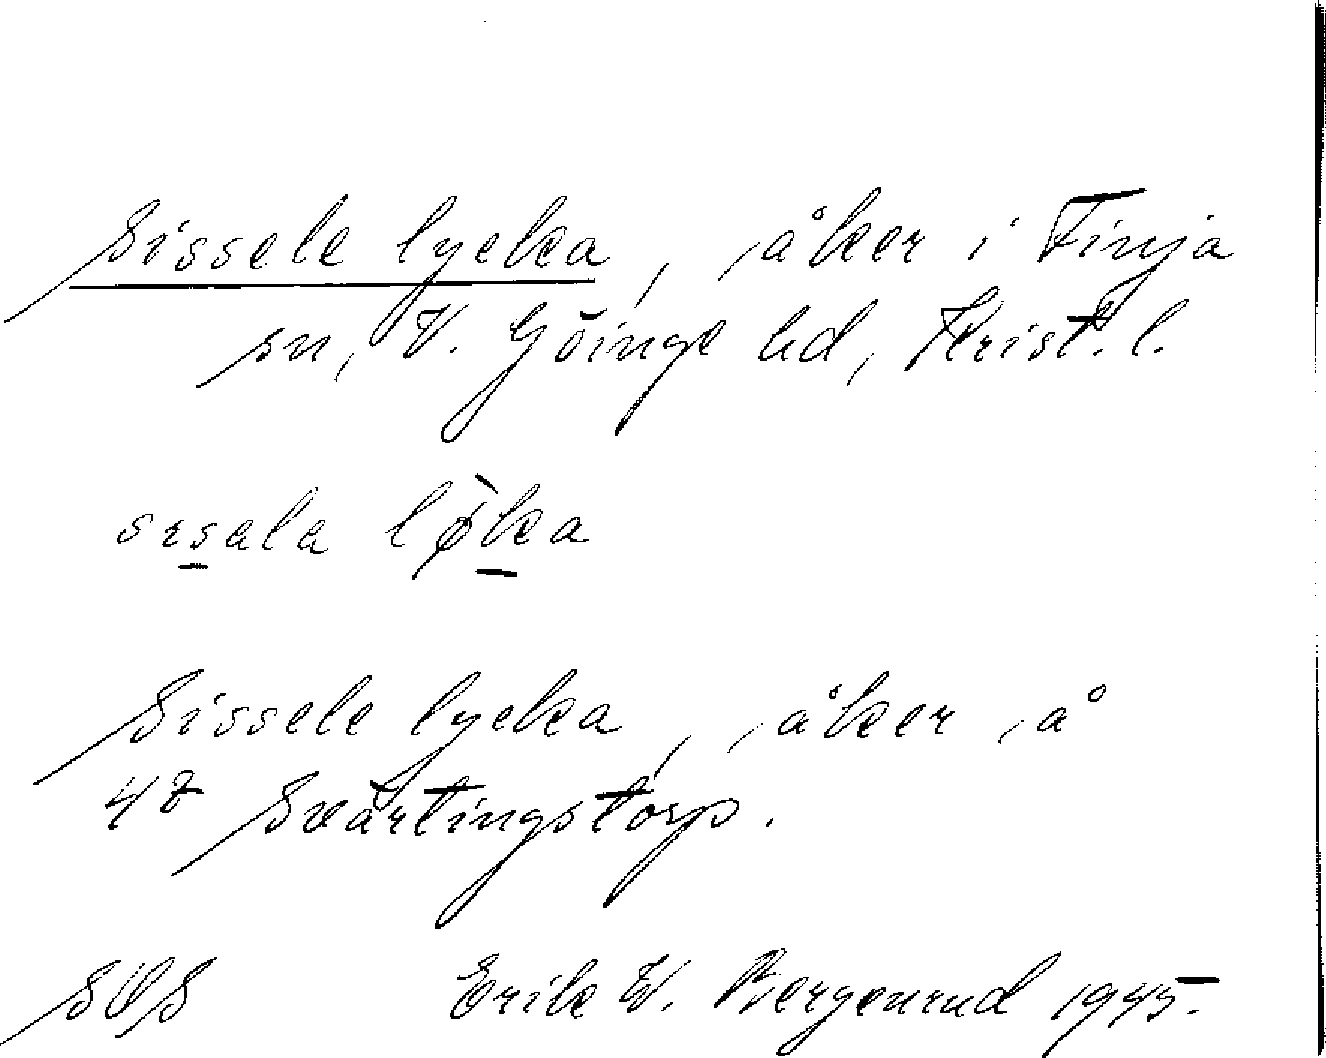 Sissele lycka, åker i Finja
sn, V. Göinge hd, Krist. l.
sɪsala lø̀ka
Sissele lycka, åker å
4⁸ Svärtingstorp.
SOS Erik W. Bergenrud 1945.